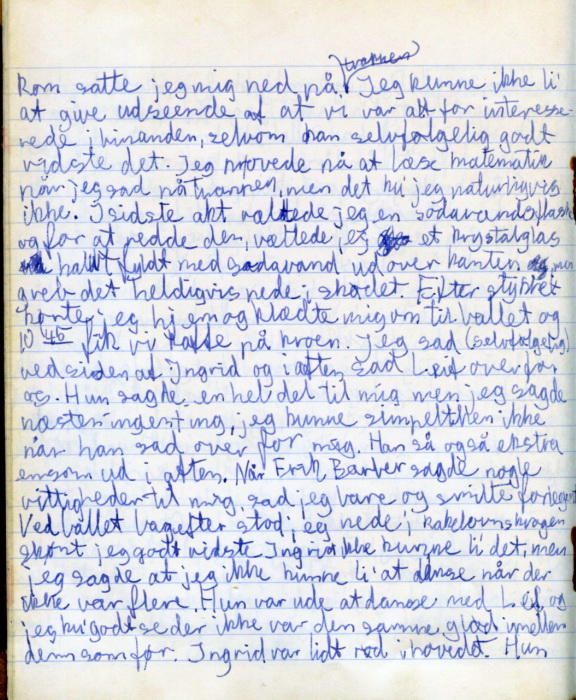 trappen
kom satte jeg mig ned på. Jeg kunne ikke li'
at give udseende af at vi var alt for interesse-
rede i hinanden, selvom han selvfølgelig godt
vidste det. Jeg prøvede på at læse matematik
når jeg sad på trappen, men det ku' jeg naturligvis
ikke. I sidste akt væltede jeg en sodavandsflaske
og for at redde den, væltede jeg et krystalglas
halvt fyldt med sodavand ud over kanten men
greb det heldigvis nede i skødet. Efter stykket
hentede jeg hjem og klædte mig om til ballet og
10 45 fik vi kaffe på kroen. Jeg sad (selvfølgelig)
ved siden af Ingrid og i aften sad Leif overfor
os. Hun sagde en hel del til mig men jeg sagde
næsten ingenting, jeg kunne simpelthen ikke
når han sad over for mig. Han så også ekstra
ensom ud i aften. Når Erik Barber sagde nogle
vittigheder til mig, sad jeg bare og smilte forlegent
Ved ballet bagefter stod jeg nede i kakelovnskrogen
skønt jeg godt vidste Ingrid ikke kunne li' det, men
jeg sagde at jeg ikke kunne li' at danse når der
ikke var flere. Hun var ude at danse med Leif og
jeg ku' godt se der ikke var den samme glød imellem
dem som før. Ingrid var lidt rød i hovedet. Hun